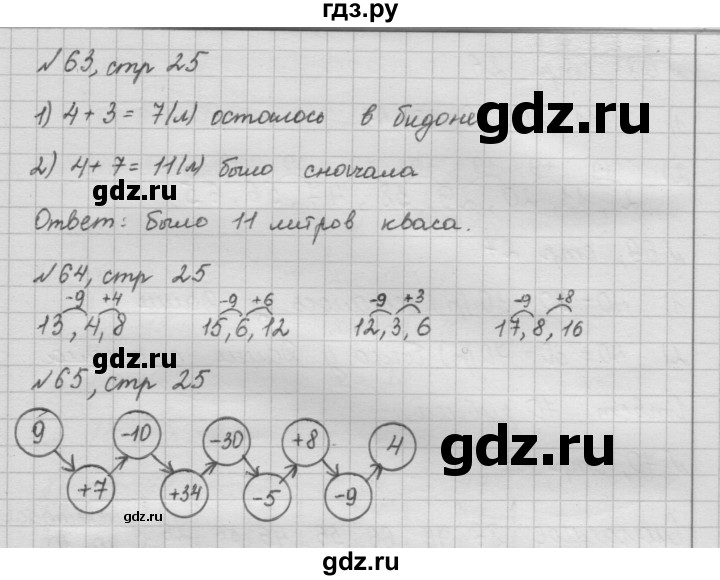 гдз.ру
№63, стр 25
1) 4 + 3 = 7(л) осталось в бидоне
gdz.ru
2) 4 + 7 = 11(л) было сначала
gdz.ru
Ответ: было 11 литров кваса.
№64, стр 25
-9 +4 -9 +6 -9 +3 -9 +8
13, 4, 8 15, 6, 12 12, 3, 6 17, 8, 16
gdz.ru
№65, стр 25
9 -10 -30 +8 4
gdz.ru
+7 +34 -5 -9
gdz.ru
gdz.ru